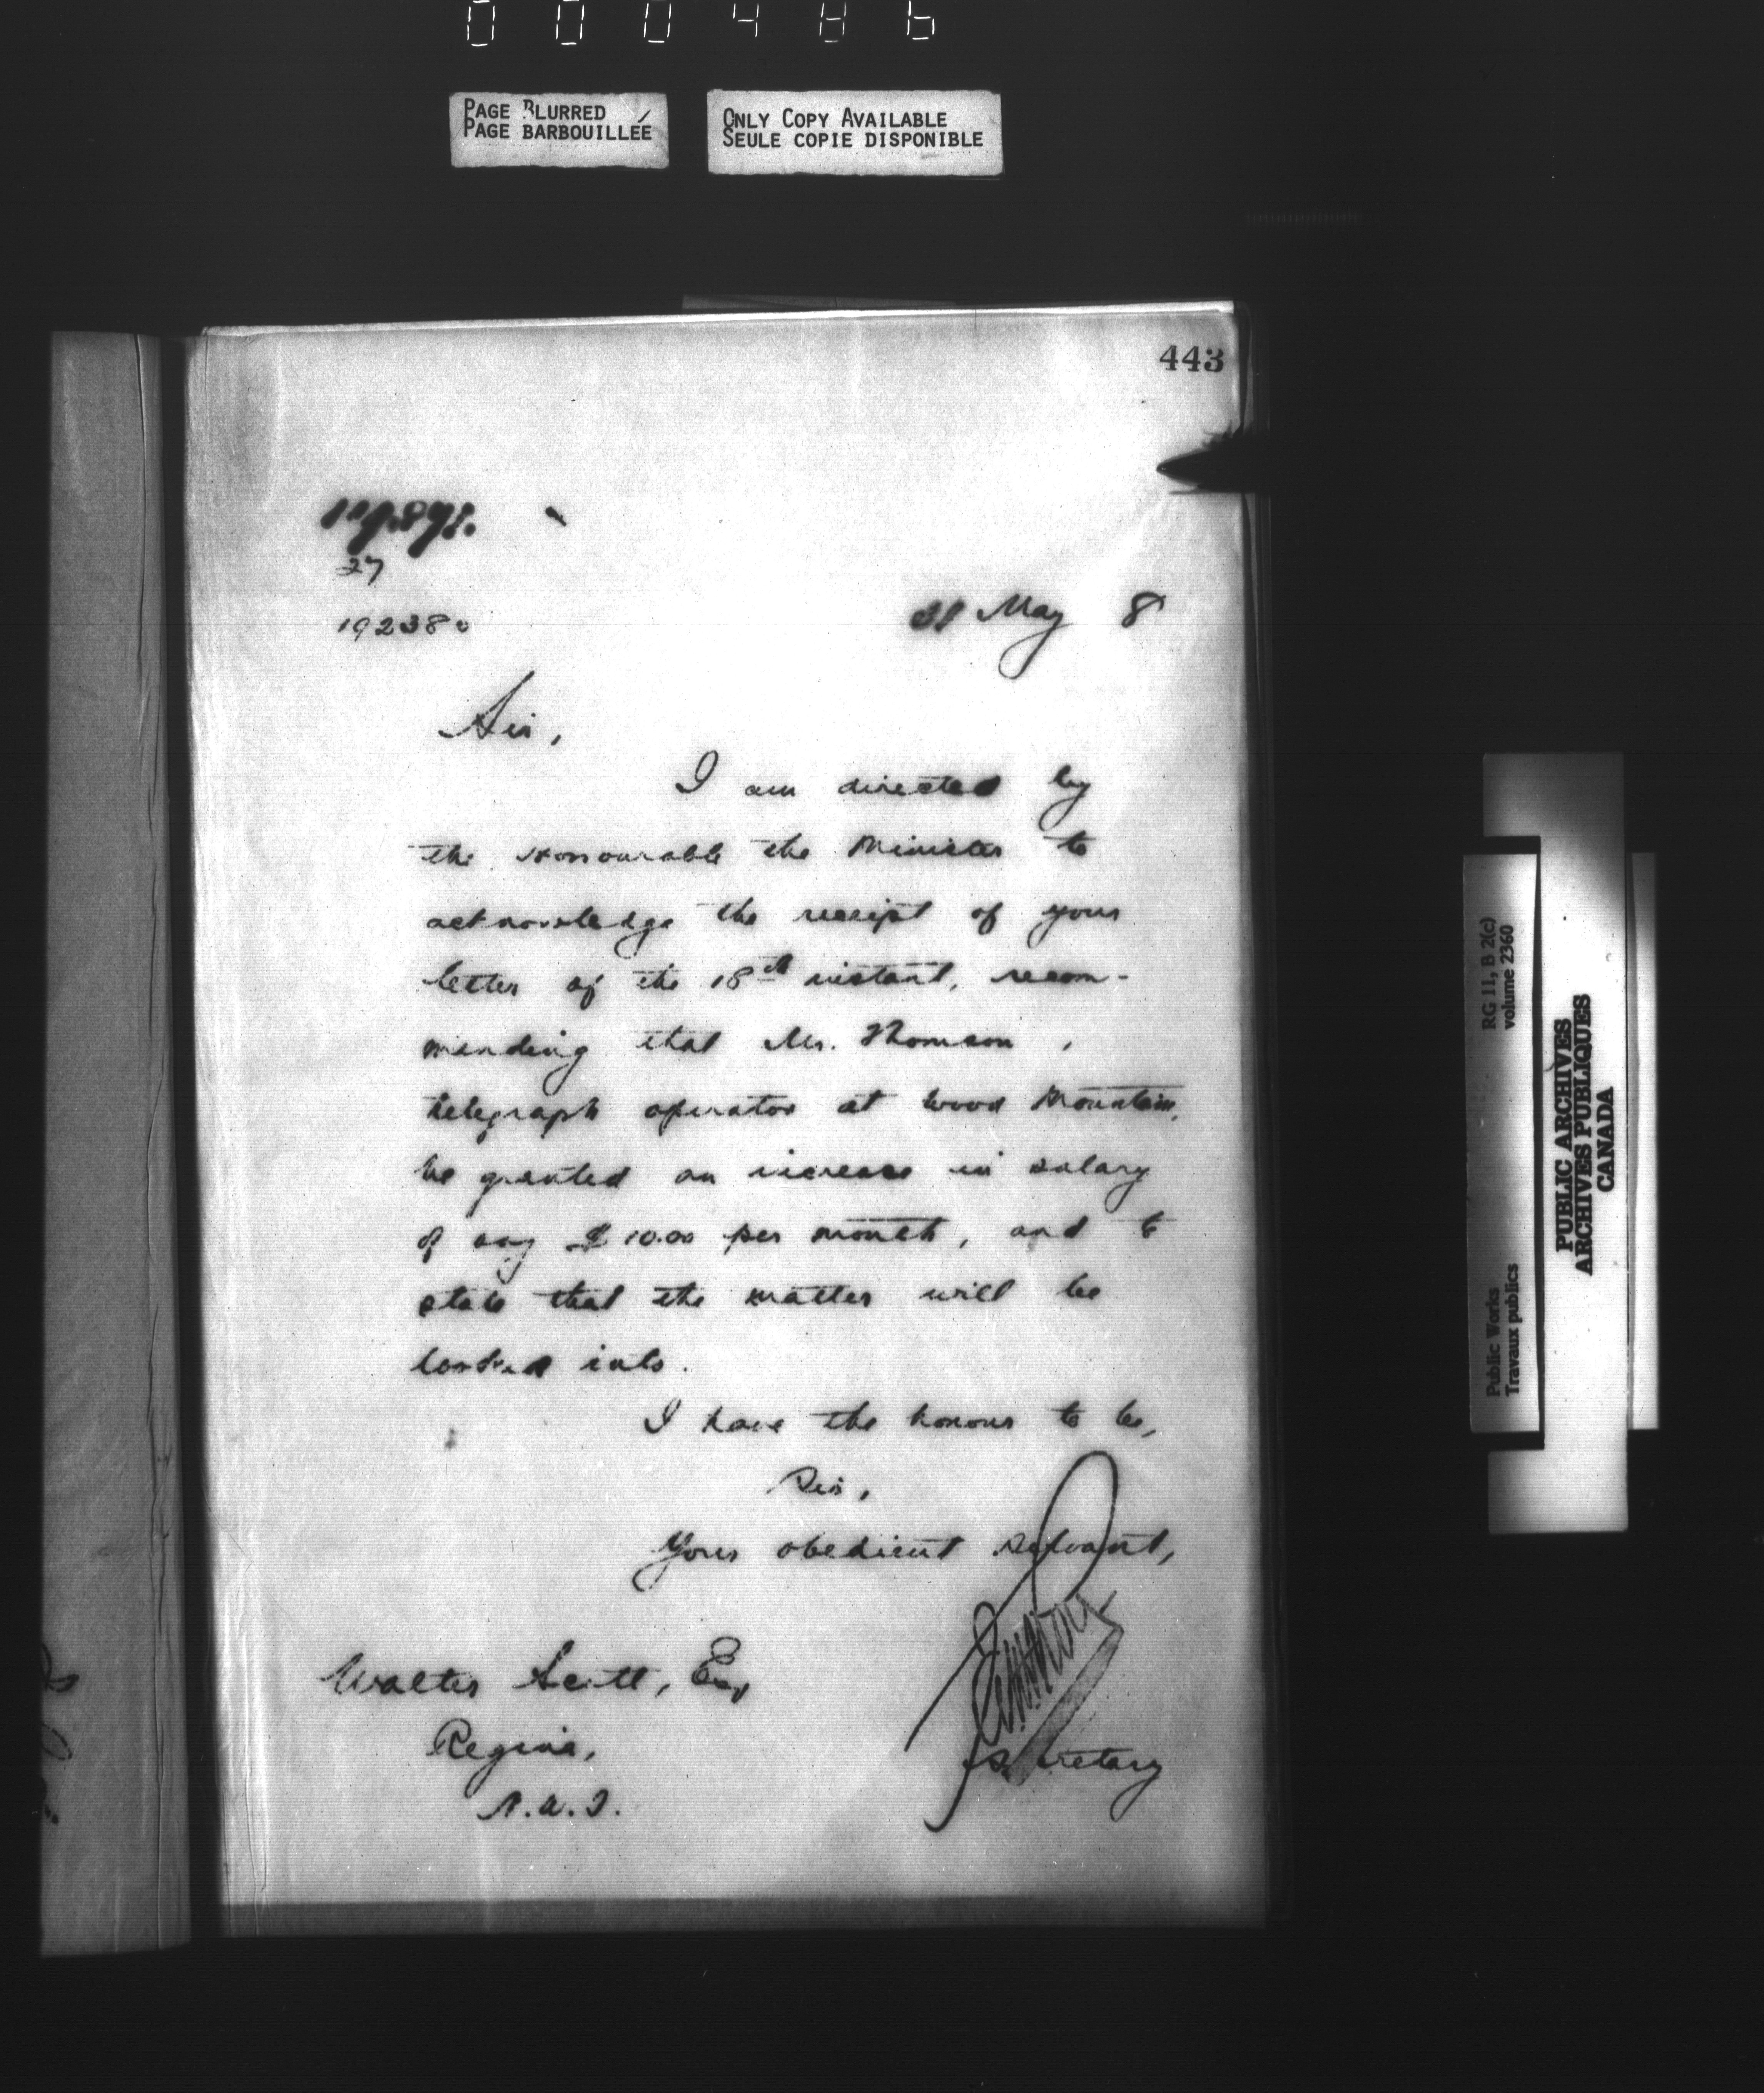 000486
PAGE BLURRED
PAGE BARBOUILLÉE
ONLY COPY AVAILABLE
SEULE COPIE DISPONIBLE
443
27
192380
31 May 8
Sir,
I am directed by
the Honourable the Minister to
acknowledge the receipt of your
letter of the 18th instant, recom-
mending that Mr. Thomson,
telegraph operator at Wood Mountain,
be granted an increase in salary
of say $10.00 per month, and to
state that the matter will be
looked into.
I have the honour to be,
Sir,
Your obedient servant,
Secretary
Walter Scott, Esq
Regina,
N.W.T.
Public Works
Travaux publics
RG 11, B 2(c)
volume 2360
PUBLIC ARCHIVES
ARCHIVES PUBLIQUES
CANADA